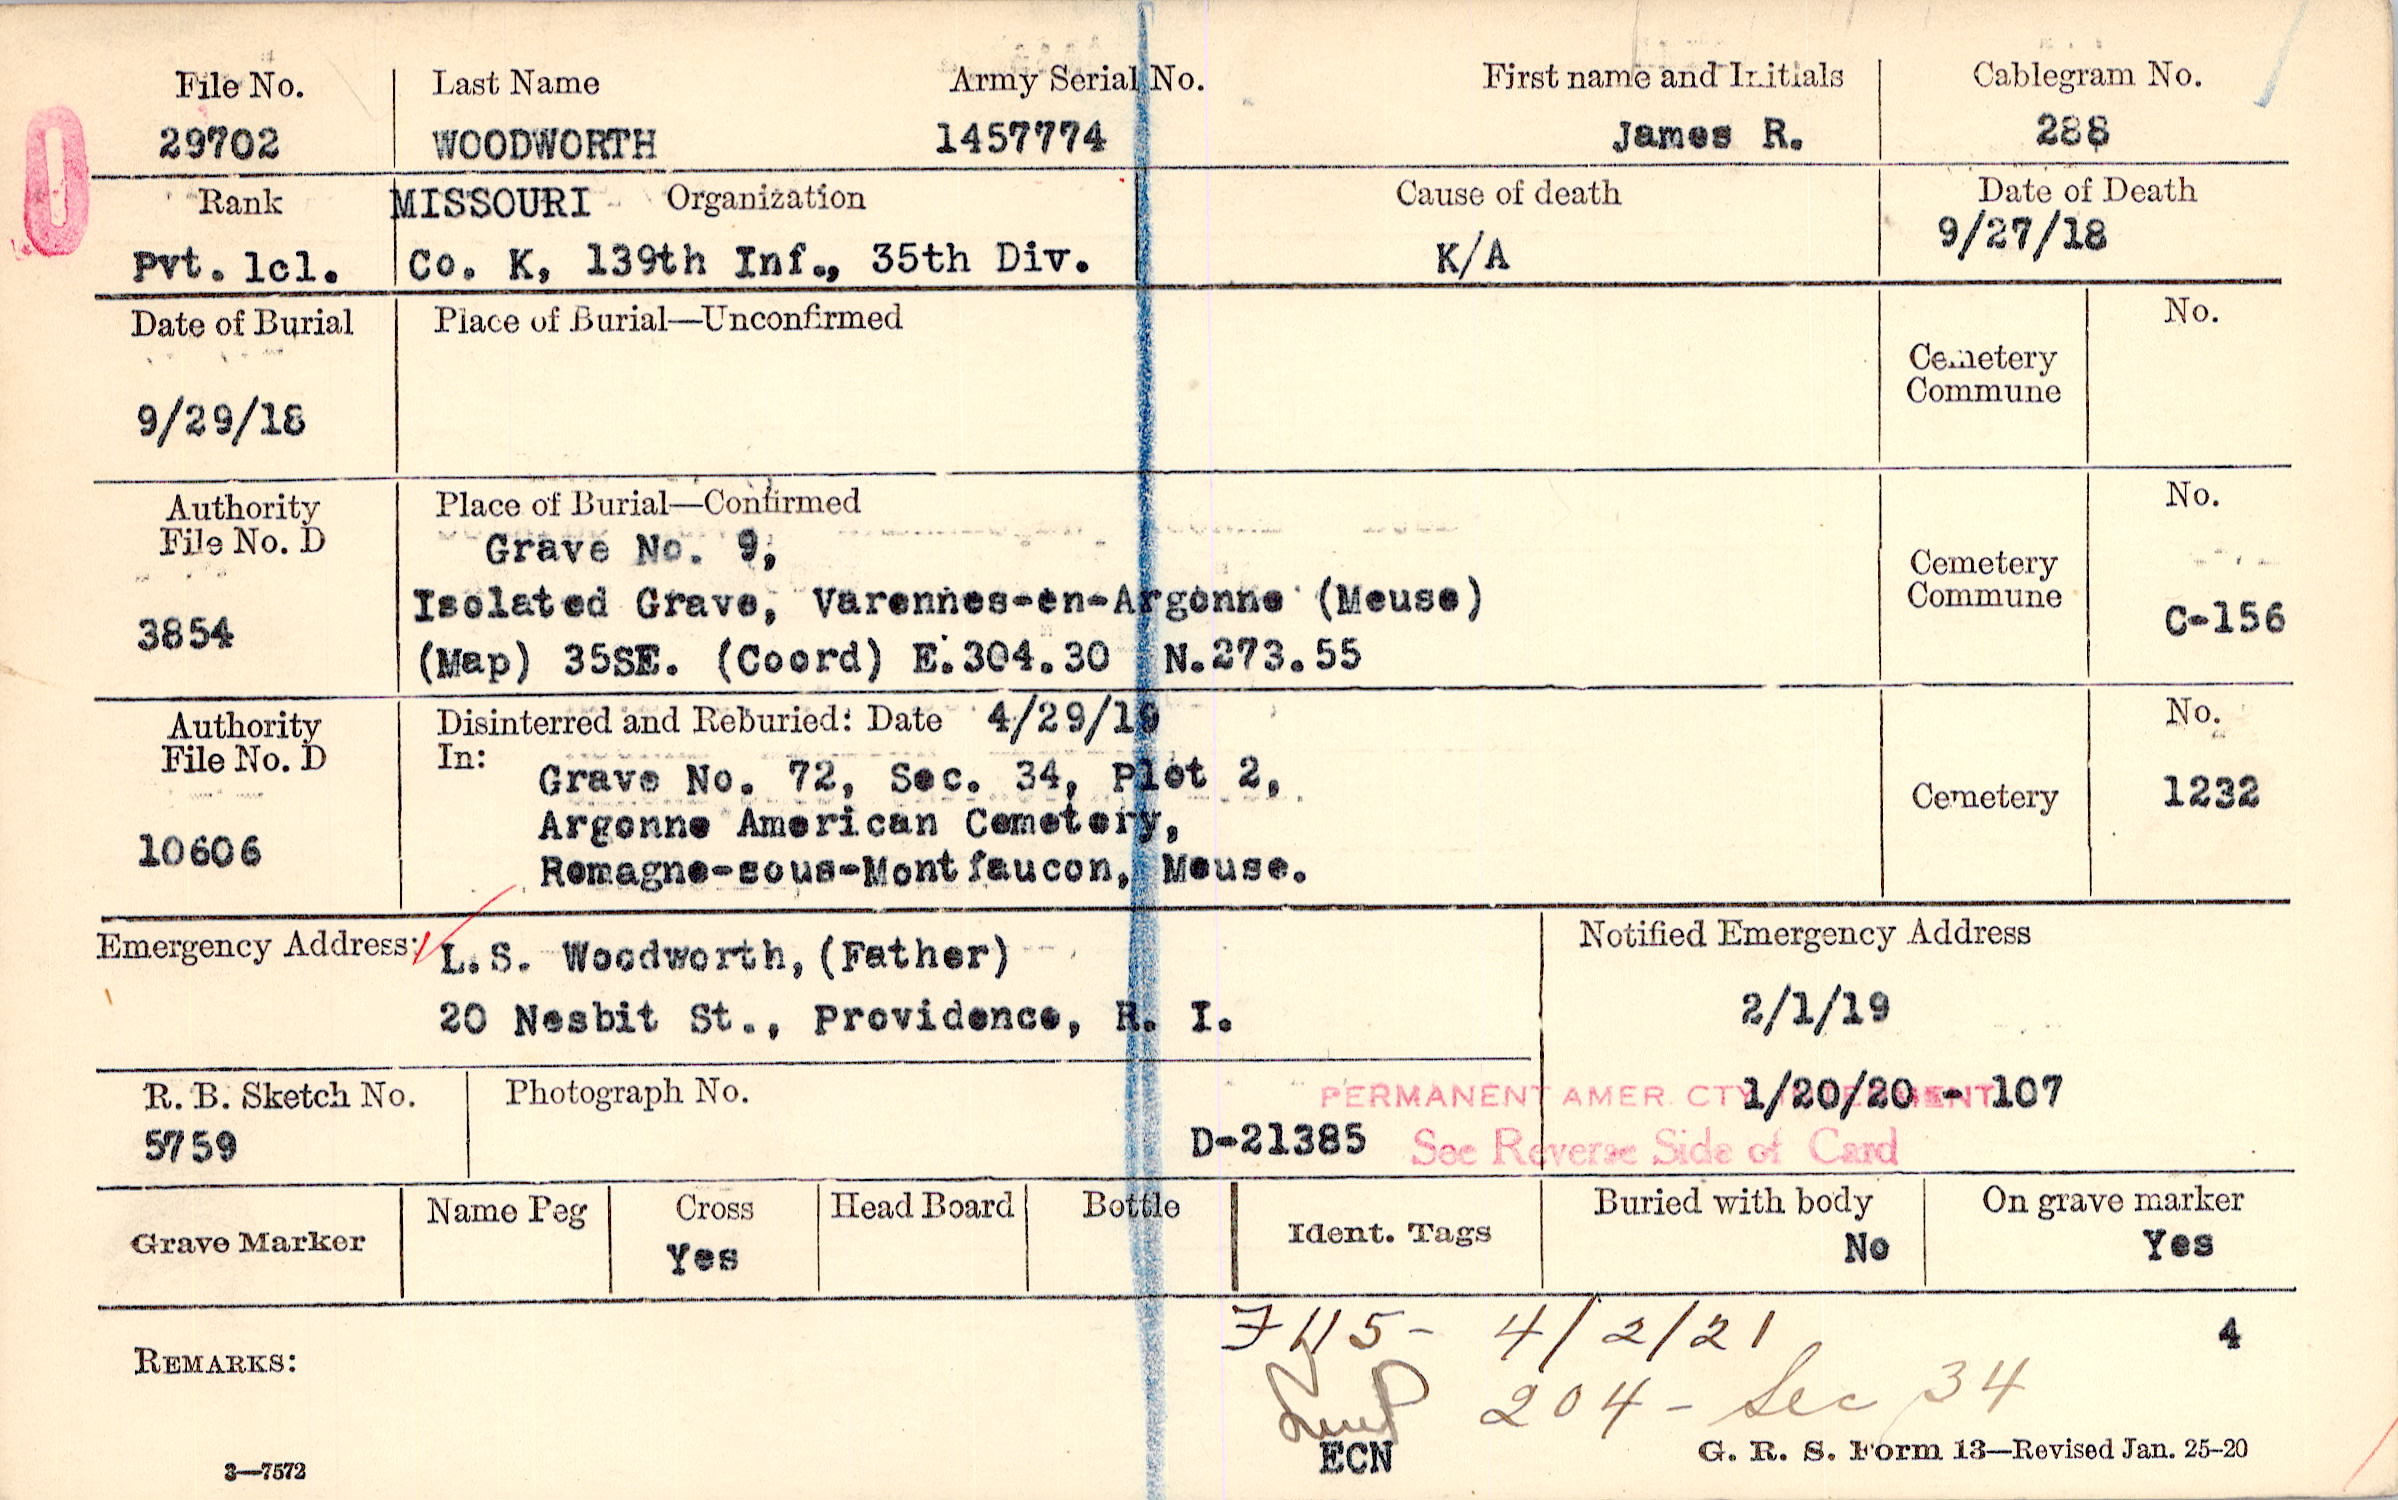 File No. Last Name Army Serial No. First name and Initials Cablegram No.
29702 WOODWORTH 1457774 James R. 288
Rank MISSOURI Organization Cause of death Date of Death
Pvt. 1cl. Co. K, 139th Inf., 35th Div. K/A 9/27/18
Date of Burial Place of Burial—Unconfirmed No.
Cemetery
Commune
9/29/18
Authority Place of Burial—Confirmed No.
File No. D Grave No. 9,
Isolated Grave, Varennes-en-Argonne (Meuse) Cemetery
Commune C-156
3854 (Map) 35SE. (Coord) E.304.30 N.273.55
Authority Disinterred and Reburied: Date 4/29/19 No.
File No. D In: Grave No. 72, Sec. 34, Plot 2, Cemetery 1232
Argonne American Cemetery,
10606 Romagne-sous-Montfaucon, Meuse.
Emergency Address: L.S. Woodworth, (Father) Notified Emergency Address
20 Nesbit St., Providence, R. I. 2/1/19
R. B. Sketch No. Photograph No. PERMANENT AMER. CTY. 1/20/20 - 107
5759 D-21385 See Reverse Side of Card
Grave Marker Name Peg Cross Head Board Bottle Ident. Tags Buried with body On grave marker
Yes No Yes
4/2/21 4
REMARKS:
204 - Sec 34
ECN
3—7572 G. R. S. Form 13—Revised Jan. 25-20